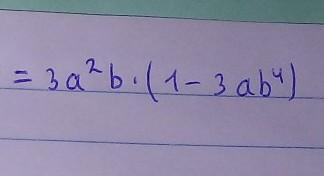 = 3a²b·(1 - 3ab⁴)